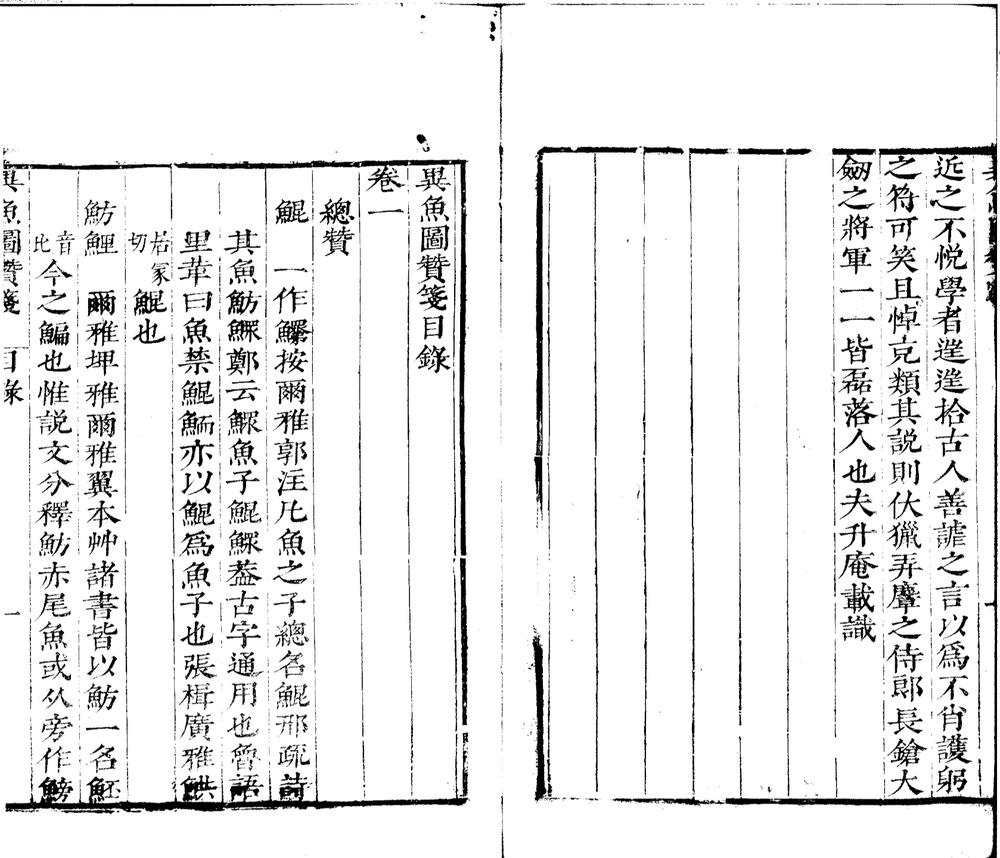 近之不悦學者逞逞拾古人善謔之言以為不肖護躬
之符可笑且悼克類其説則伏獵弄麞之侍郎長鎗大
劒之將軍一一皆磊落人也夫升庵載識
異魚圖贊箋目錄
卷一
總贊
鯤 一作鱞按爾雅郭注凡魚之子總名鯤邢疏詩
其魚魴鰥鄭云鰥魚子鯤鰥葢古字通用也魯語
里革曰魚禁鯤鮞亦以鯤為魚子也張楫廣雅
居家切鯤也
魴鯉 爾雅埤雅爾雅翼本艸諸書皆以魴一名魾
音比今之鯿也惟説文分釋魴赤尾魚或从旁作鰟
異魚圖贊箋 目錄 一